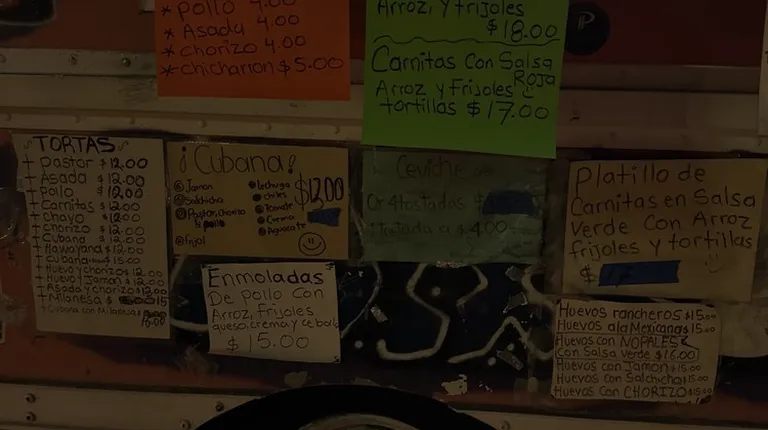 * pollo 4.00
* Asada 4.00
* chorizo 4.00
* chicharron $5.00
Arroz, y frijoles
$18.00
Carnitas Con Salsa
Roja
Arroz y Frijoles
tortillas $17.00
TORTAS
+ Pastor $12.00
+ Asada $12.00
+ Pollo $12.00
+ Carnitas $12.00
+ Chayo $12.00
+ Chorizo $12.00
+ Cubana $12.00
+ Hawayana $12.00
+ Cubana $15.00
+ Huevo y chorizo $12.00
+ Huevo y Jamon $12.00
+ Asada y Chorizo $12.00
+ Milanesa $ 15
+ Cubana con Milanesa
16.00
¡Cubana!
Jamon
Salchicha
Pastor, Chorizo
pollo
frijol
Lechuga
chiles
Tomate
Crema
Aguacate
$12.00
Enmoladas
De pollo con
Arroz, frijoles
queso, crema, y cebolla
$15.00
Ceviche de
Or 4 tostadas $
1 Tostada a $4.00
Platillo de
Carnitas en Salsa
Verde Con Arroz
frijoles y tortillas
$
Huevos rancheros $15.00
Huevos a la Mexicana $15
Huevos Con NOPALES
Con Salsa Verde $16.00
Huevos con Jamon $15.00
Huevos con Salchicha $15.00
Huevos Con CHORIZO $15.00